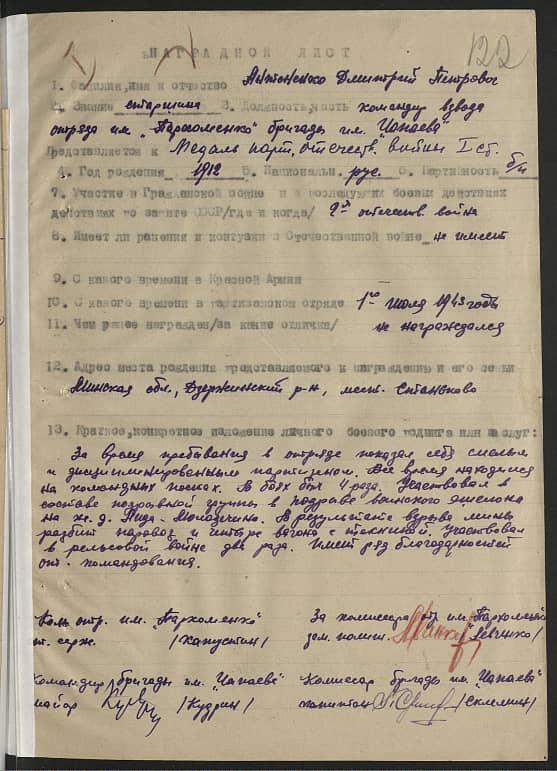 122
НАГРАДНОЙ ЛИСТ
1. Фамилия, имя и отчество Антоненко Дмитрий Петрович
2. Звание старшина 3. Должность, часть командир взвода
отряда им. "Пархоменко" бригады им. "Чапаева"
Представляется к Медаль парт. отечеств. войны I ст.
4. Год рождения 1912 5. Национальн. рус. 6. Партийность б/п
7. Участие в Гражданской войне и в последующих боевых действиях
действиях по защите СССР/где и когда/ отечеств. война
8. Имеет ли ранения и контузии в Отечественной войне не имеет
9. С какого времени в Красной Армии
10. С какого времени в партизанском отряде 1го июля 1943 года
11. Чем ранее награжден/за какие отличия/ не награждался
12. Адрес места рождения представляемого к награждению и его семьи
Минская обл., Дзержинский р-н, мест. Станьково
13. Краткое, конкретное изложение личного боевого подвига или заслуг:
За время пребывания в отряде показал себя смелым
и дисциплинированным партизаном. Всё время находился
на командных постах. В боях был 4 раза. Участвовал в
составе подрывной группы в подрыве воинского эшелона
на ж.д. Лида - Молодечно. В результате взрыва мины
разбит паровоз и четыре вагона с техникой. Участвовал
в рельсовой войне два раза. Имеет ряд благодарностей
от командования.
отр. им. "Пархоменко" За комиссара отр. им. "Пархоменко"
ст. серж. /Капустин/ зам. полит. /Левченко/
Командир бригады им. "Чапаева" Комиссар бригады им. "Чапаева"
майор /Кудрин/ капитан